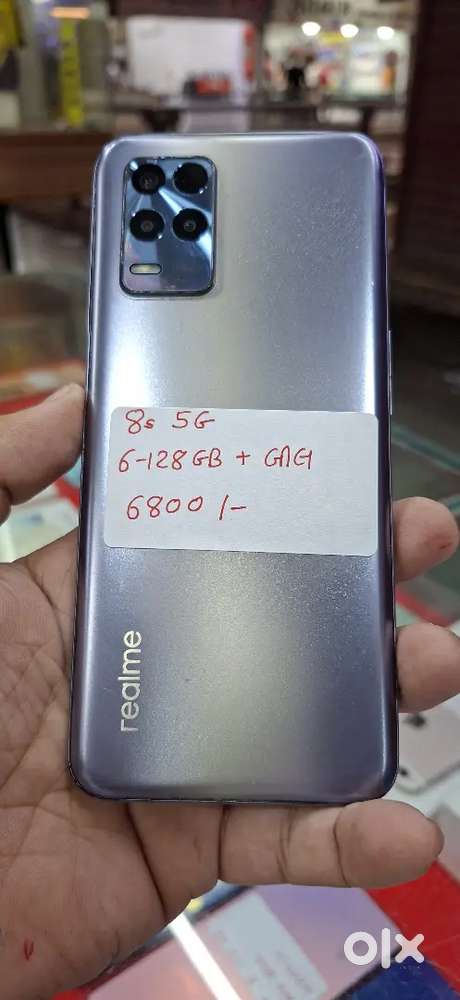 8s 5G
6-128GB +
6800 /-
realme
olx